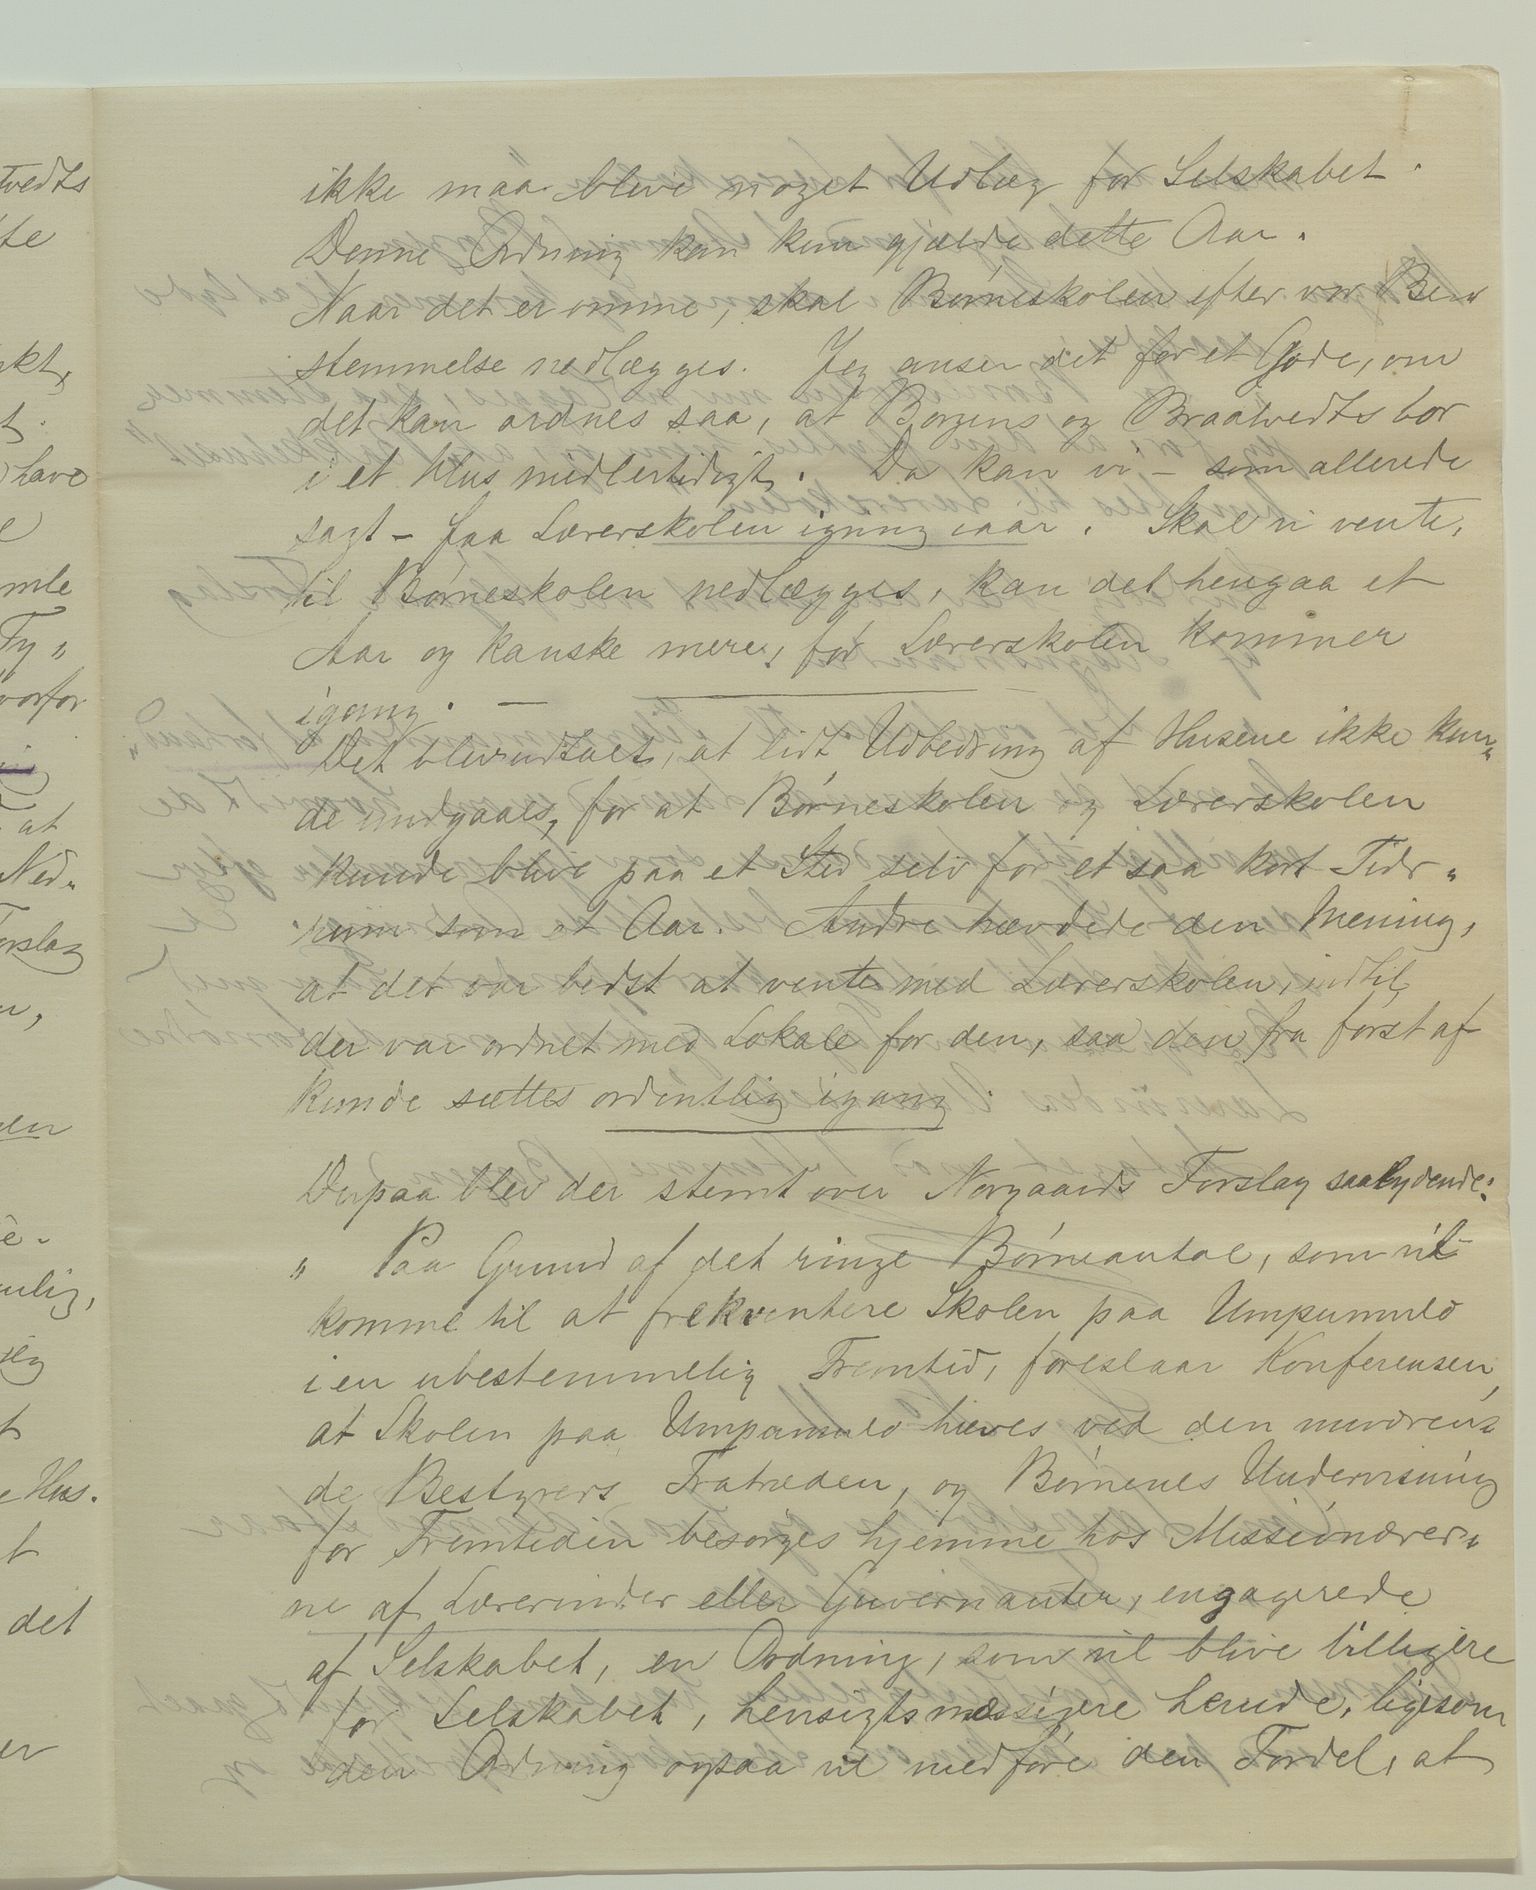 ikke maa blive noget Udlæg for Selskabet.
Denne Ordning kan kun gjælde dette Aar.
Naar det er omme, skal Børneskolen efter vor Be„
stemmelse nedlægges. Jeg anser det for et Gode, om
det kan ordnes saa, at Borgens og Braatvedts bor
i et Hus midlertidigt. Da kan vi – som allerede
sagt – faa Lærerskolen igang iaar. Skal vi vente,
til Børneskolen nedlægges, kan det hengaa et
Aar og kanske mere, før Lærerskolen kommer
igang. –
Det blev udtalt, at lidt Udbedring af Husene ikke kun„
de undgaaes, for at Børneskolen og Lærerskolen
kunde blive paa et Sted selv for et saa kort Tids„
rum som et Aar. Andre hævdede den Mening,
at det var bedst at vente med Lærerskolen, indtil
der var ordnet med Lokale for den, saa den fra først af
kunde sættes ordentlig igang.
Derpaa blev der stemt over Norgaards Forslag saalydende:
„ Paa Grund af det ringe Børneantal, som vil
komme til at frekventere Skolen paa Umpumulo
i en ubestemmelig Fremtid, foreslaar Konferensen,
at Skolen paa Umpumulo hæves ved den nuværen„
de Bestyrers Fratræden, og Børnenes Undervisning
for Fremtiden besørges hjemme hos Missionærer„
ne af Lærerinder eller Guvernanter, engagerede
af Selskabet, en Ordning, som vil blive billigere
for Selskabet, hensigtsmæssigere herude, ligesom
den Ordning ogsaa vil medføre den Fordel, at
tvedts
te
kt,
t.
have
e
mle
Ty„
vorfor
at
Ned„
Forslag
n,
en
e-
mlig,
jeg
t
e Hus.
t
det
er